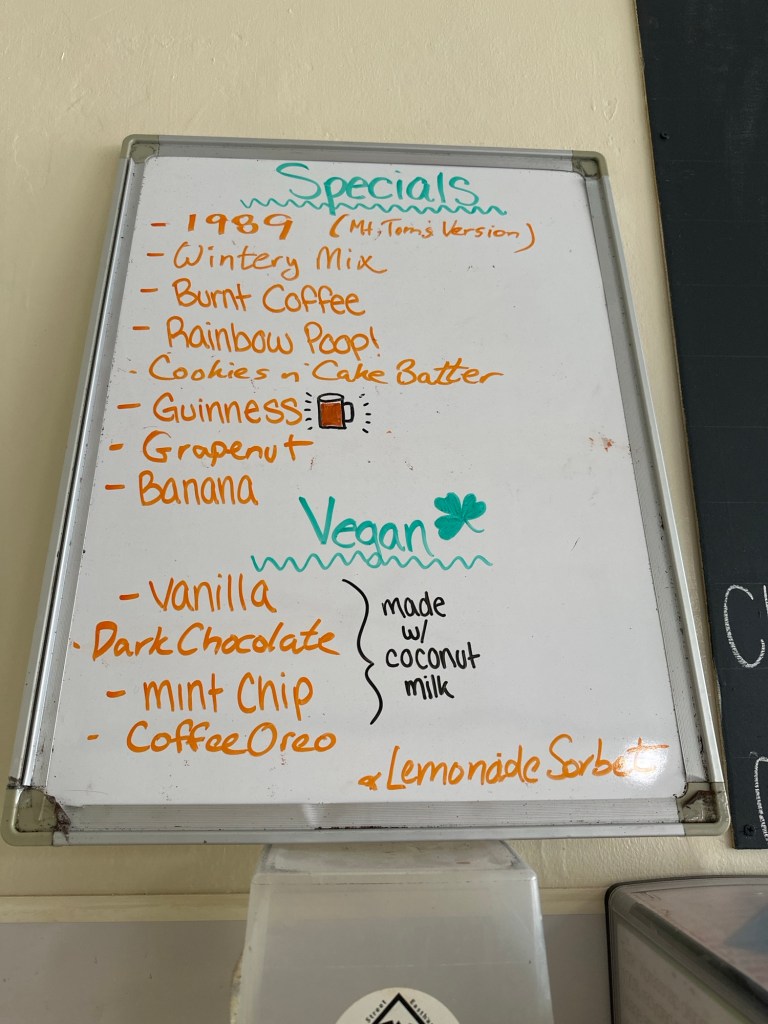 Specials
- 1989 (Mt. Tom's Version)
- Wintery Mix
- Burnt Coffee
- Rainbow Poop!
- Cookies n' Cake Batter
- Guinness
- Grapenut
- Banana
Vegan
- Vanilla
- Dark Chocolate
- mint Chip
- Coffee Oreo
made
w/
coconut
milk
Lemonade Sorbet
Street